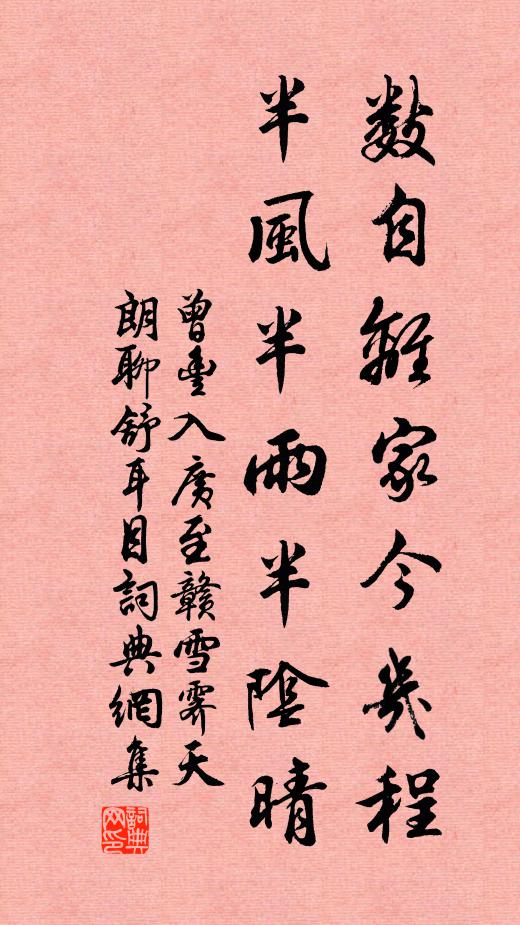 數自離家今幾程
半風半雨半陰晴
曾豐入廣至贛雪霽天
朗聊舒耳目詞典網集
詞典
网印